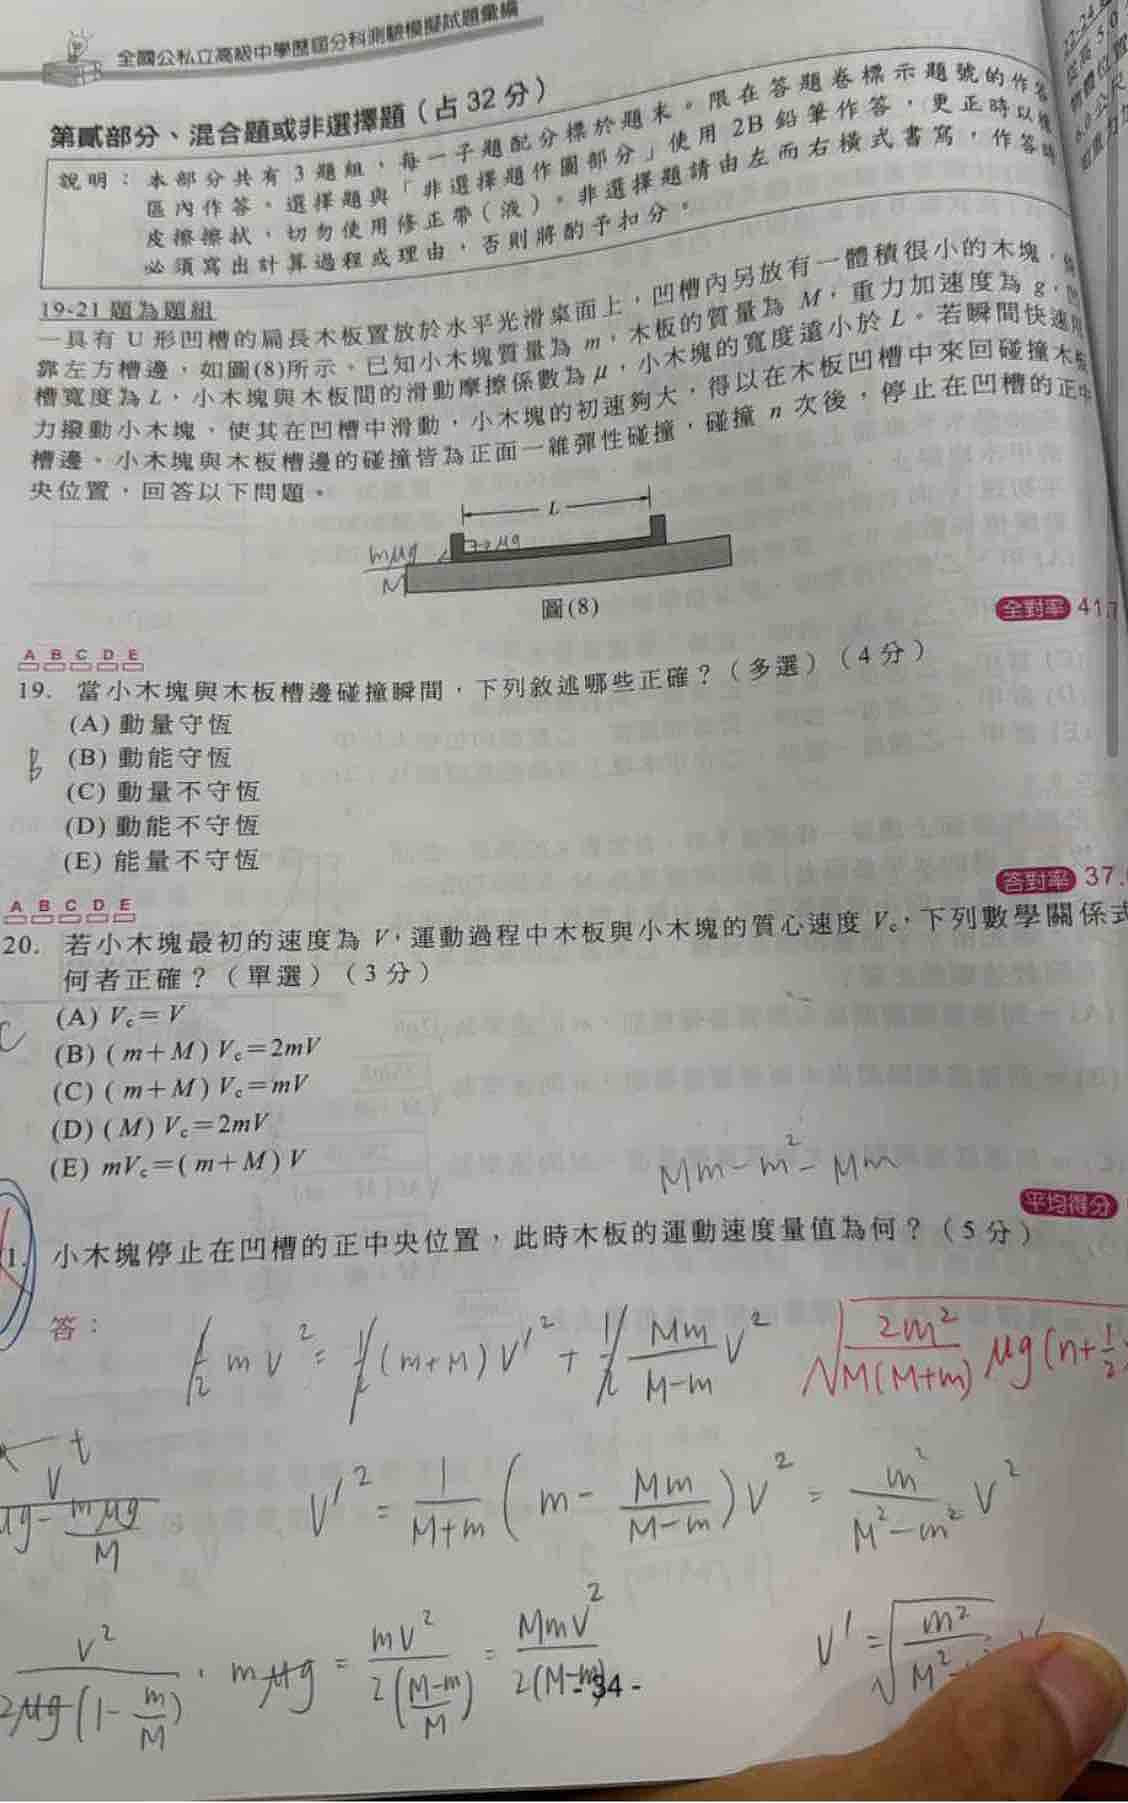 全國公私立高級中學歷屆分科測驗模擬試題彙編
第貳部分、混合題或非選擇題（占 32 分）
說明：本部分共有 3 題組，每一子題配分標於題末。限在答題卷標示題號的作答
區內作答。選擇題與「非選擇題作圖部分」使用 2B 鉛筆作答，更正時以橡
皮擦擦拭，切勿使用修正帶（液）。非選擇題請由左而右橫式書寫，作答時
必須寫出計算過程或理由，否則將酌予扣分。
19-21 題為題組
一具有 U 形凹槽的扁長木板置放於水平光滑桌面上，凹槽內另放有一體積很小的木塊，
靠左方槽邊，如圖(8)所示。已知小木塊質量為 m，木板的質量為 M，重力加速度為 g，凹
槽寬度為 L，小木塊與木板間的滑動摩擦係數為 μ，小木塊的寬度遠小於 L。若瞬間快速
力撥動小木塊，使其在凹槽中滑動，小木塊的初速夠大，得以在木板凹槽中來回碰撞木板
槽邊。小木塊與木板槽邊的碰撞皆為正面一維彈性碰撞，碰撞 n 次後，停止在凹槽的正中
央位置，回答以下問題。
L
mμg
M
μg
圖(8)
全對率 41.7
A B C D E
19. 當小木塊與木板槽邊碰撞瞬間，下列敘述哪些正確？（多選）（4 分）
(A) 動量守恆
B (B) 動能守恆
(C) 動量不守恆
(D) 動能不守恆
(E) 能量不守恆
答對率 37.
A B C D E
20. 若小木塊最初的速度為 V，運動過程中木板與小木塊的質心速度 Vc，下列數學關係式
何者正確？（單選）（3 分）
(A) Vc＝V
C (B) (m＋M) Vc＝2mV
(C) (m＋M) Vc＝mV
(D) (M) Vc＝2mV
(E) mVc＝(m＋M) V
Mm－m²－Mm
平均得分
1. 小木塊停止在凹槽的正中央位置，此時木板的運動速度量值為何？（5 分）
答：
1/2 mv² = 1/2 (m+M) V'² + 1/2 Mm/(M-m) V² √(2m²/(M(M+m)) μg(n+1/2
t
V/(μg - mμg/M) V'² = 1/(M+m) (m - Mm/(M-m)) V² = m²/(M²-m²) V²
V²/(2μg(1 - m/M)) · mμg = mV²/(2((M-m)/M)) = MmV²/(2(M-m)) V' = √(m²/M²
- 34 -